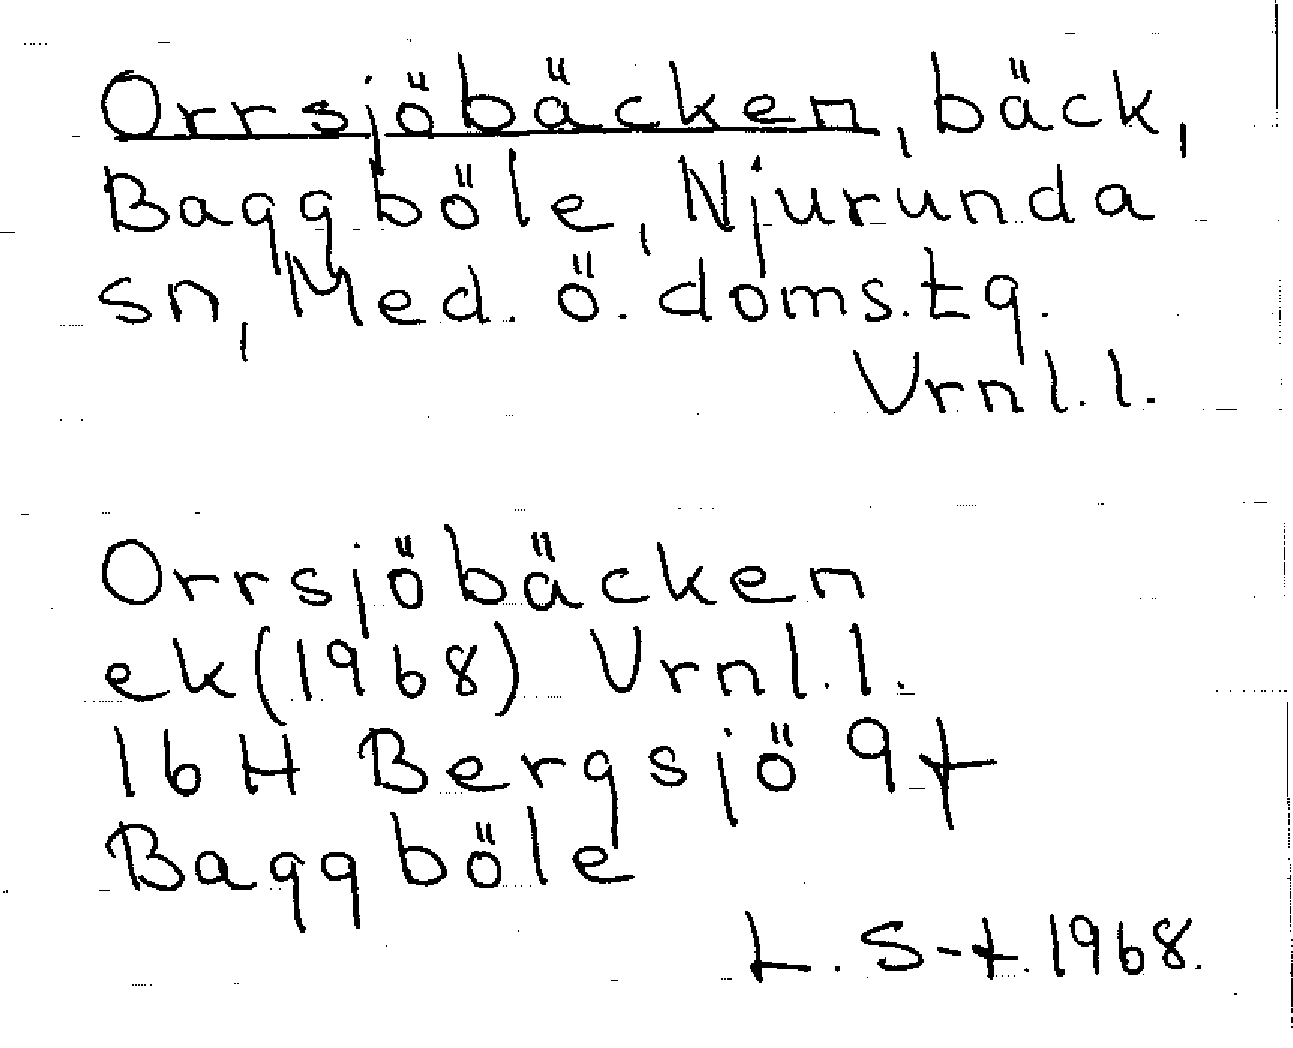 Orrsjöbäcken, bäck,
Baggböle, Njurunda
sn, Med. ö. doms.tg.
Vrnl.l.
Orrsjöbäcken
ek(1968) Vrnl.l.
16H Bergsjö 9f
Baggböle
L. S-t. 1968.